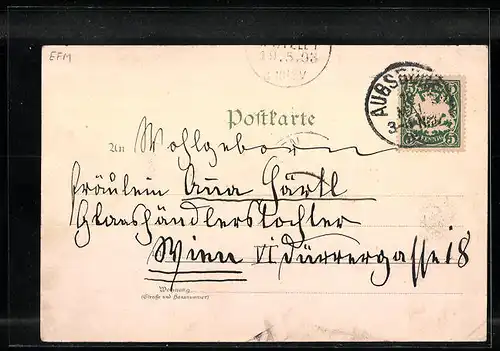 EFM
BESTELLT
19.5.03
Postkarte
AUGSBURG
5 5
An Wohlgeboren
Fräulein Anna Härtl
Glashändlerstochter
Wien VI Dürrergasse 18
Wohnung
(Straße und Hausnummer)